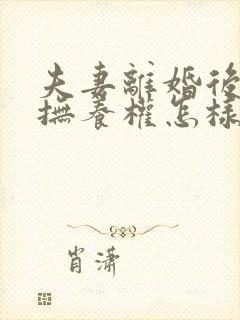 夫妻離婚後
撫養權怎樣
肖瀟